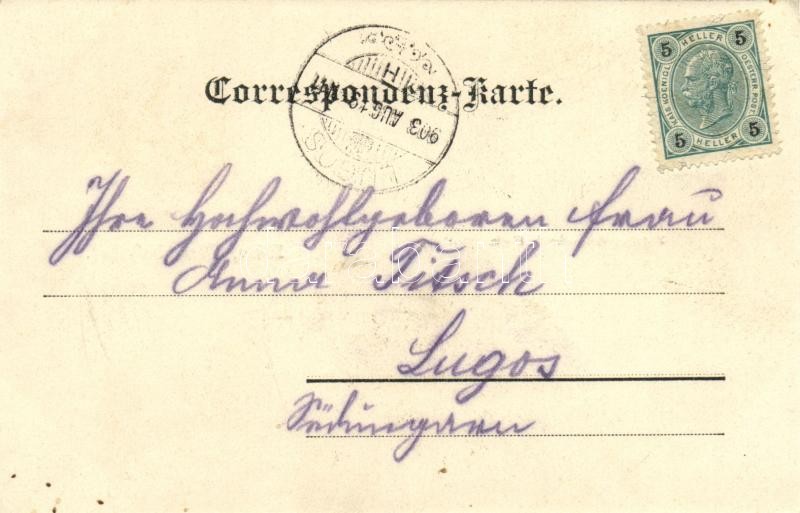 Correspondenz-Karte.
LUGOS
903 AUG 12
5 HELLER 5
KAIS. KOENIGL. OESTERR. POST
5 HELLER 5
Ihre Hochwohlgeboren Frau
Anna Titsch
Lugos
Südungarn